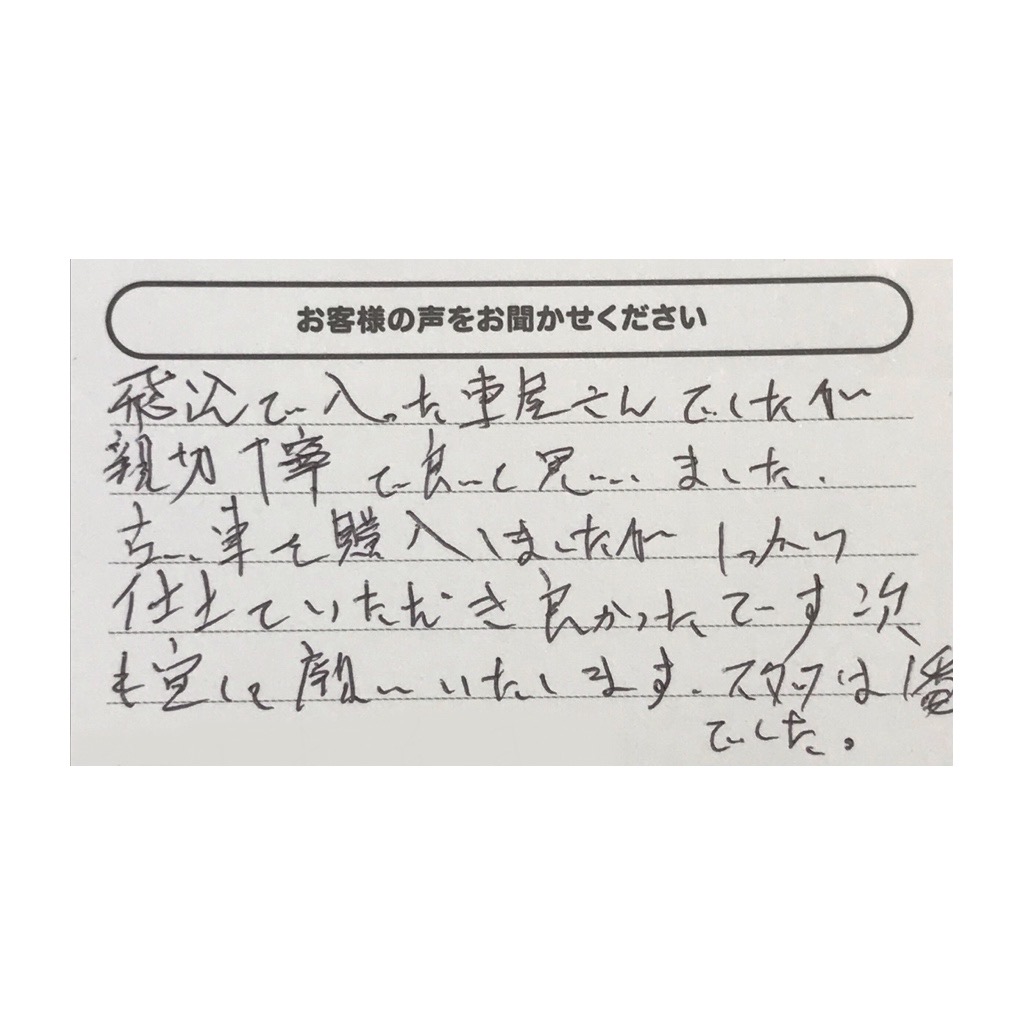 お客様の声をお聞かせください
飛込で入った車屋さんでしたが
親切丁寧で良いと思いました.
古い車を購入しましたがしっかり
仕上ていただき良かったでーす次
も宜しく願いいたします.スタッフは1番
でした。